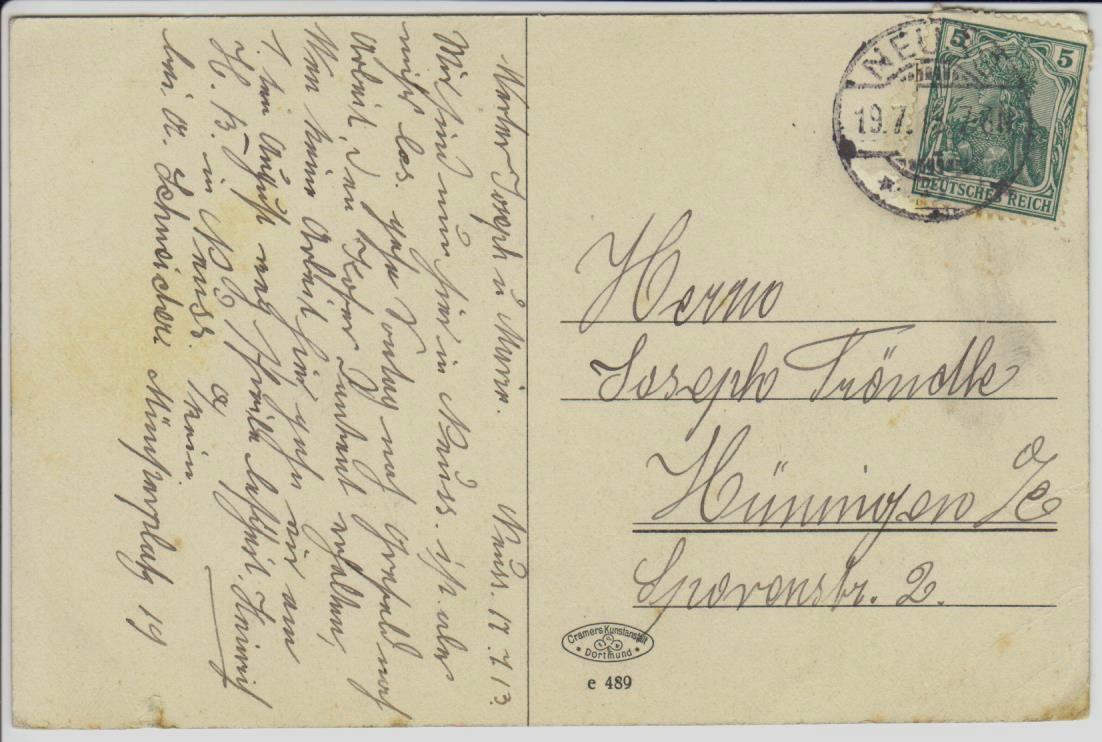 Neuss. 17.7.13.
Werter Joseph u Maria.
Wir sind nun hier in Neuss. ist aber
nichts los. gehe Montag nach Crefeld nach
Arbeit, den
Wen keine Arbeit hier gehn wir am
1 ten August nach
H. B. in
in Neuss.
bei A. Schneider Münsterplatz 19
NEUSS
19.7. 7-8N
5 5
DEUTSCHES REICH
Herrn
Joseph Tröndle
Hüningen i/E
Sporenstr. 2.
Cramers Kunstanstalt
Dortmund
e 489